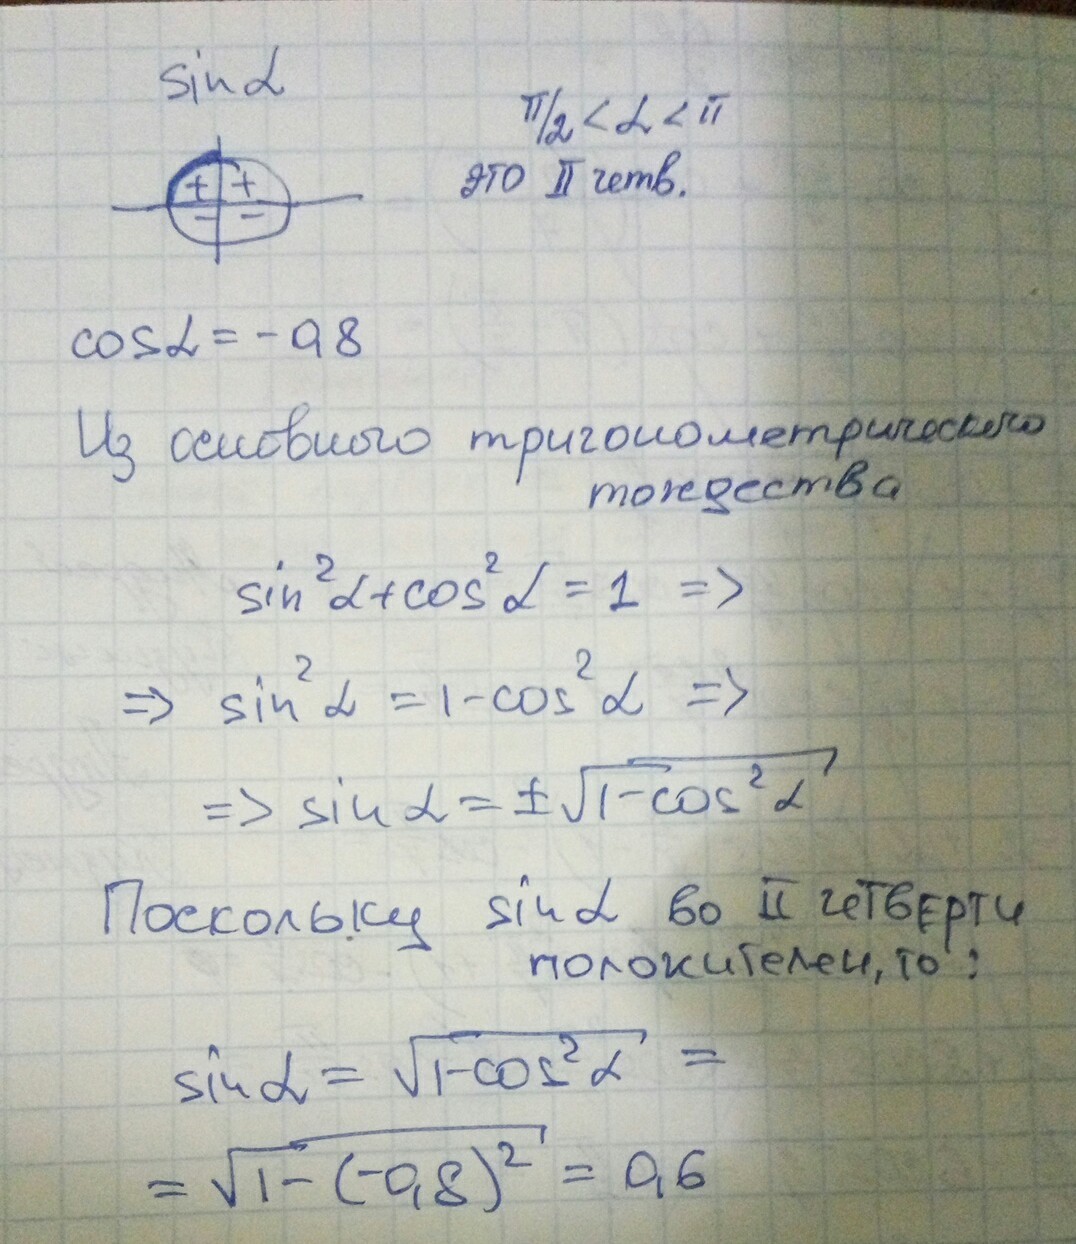 sin α
π/2 < α < π
это II четв.
+ +
− −
cos α = - 0,8
Из основного тригонометрического
тождества
sin²α + cos²α = 1 =>
=> sin²α = 1 - cos²α =>
=> sin α = ±√1-cos²α
Поскольку sin α во II четверти
положителен, то :
sin α = √1-cos²α =
= √1-(-0,8)² = 0,6